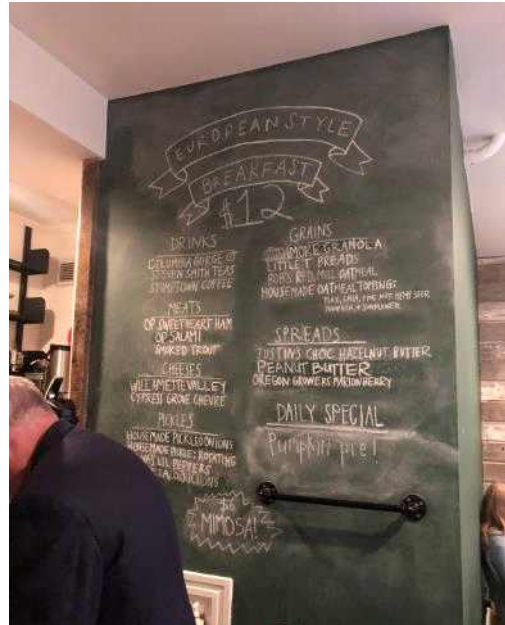 EUROPEAN STYLE
BREAKFAST
$12
DRINKS
COLUMBIA GORGE OJ
STEVEN SMITH TEAS
STUMPTOWN COFFEE
MEATS
OP SWEETHEART HAM
OP SALAMI
SMOKED TROUT
CHEESES
WILLAMETTE VALLEY
CYPRESS GROVE CHEVRE
PICKLES
HOUSEMADE PICKLED ONIONS
HOUSEMADE PICKLE: ROTATING
LIL PEPPERS
$6
MIMOSA!
GRAINS
GRANOLA
LITTLE T BREADS
BOB'S RED MILL OATMEAL
HOUSEMADE OATMEAL TOPPING:
FLAX, CHIA, PINE NUT, HEMP SEED
SPREADS
JUSTIN'S CHOC HAZELNUT BUTTER
PEANUT BUTTER
OREGON GROWERS MARIONBERRY
DAILY SPECIAL
Pumpkin pie!